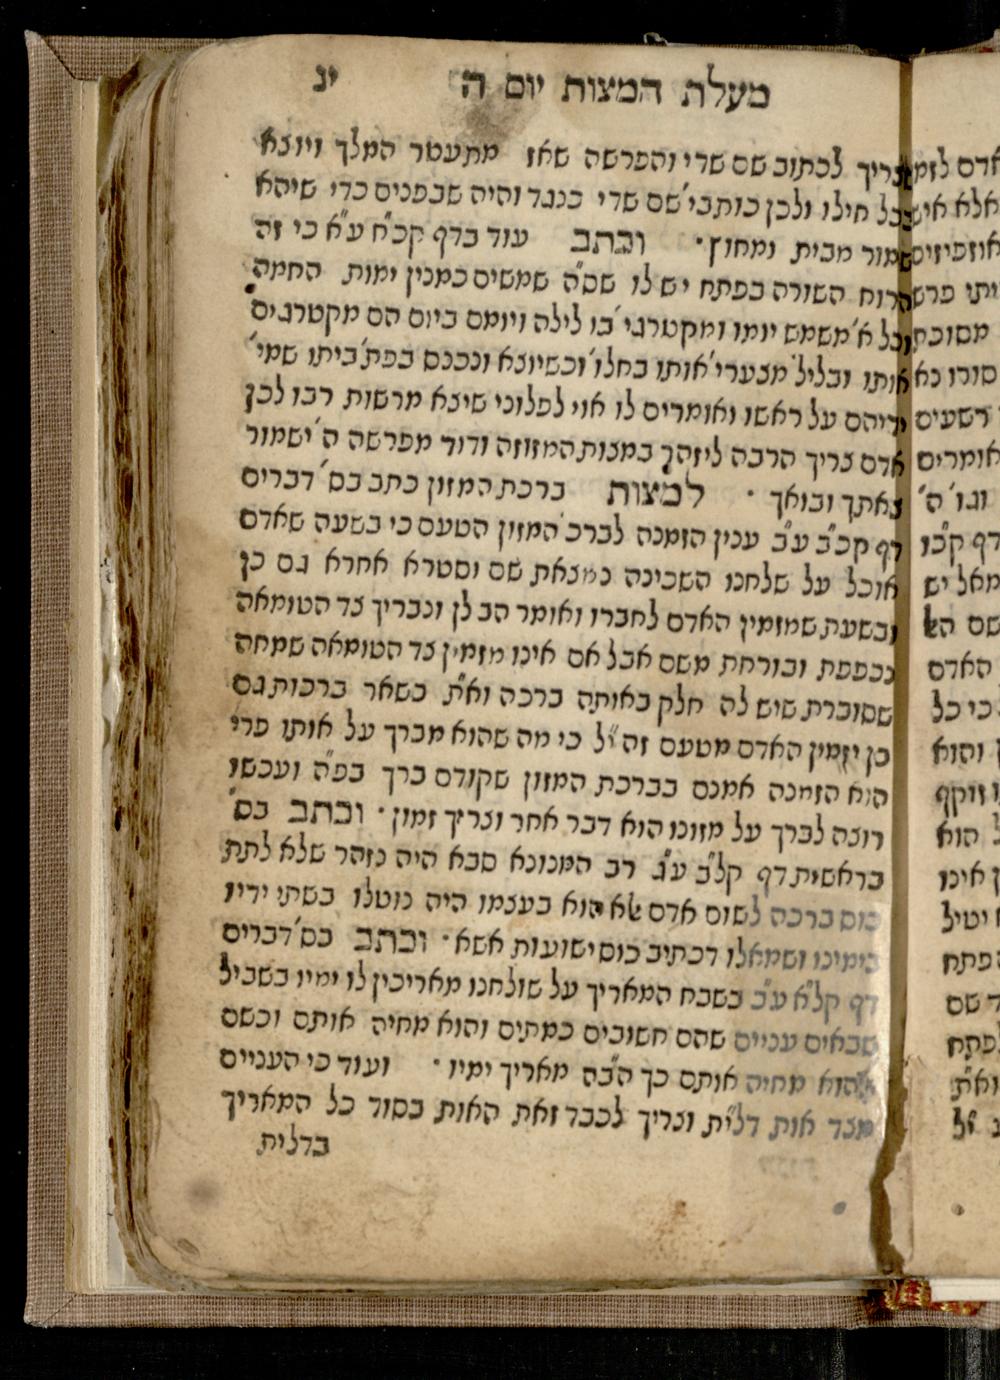 מעלת המצות יום ה יג
צריך לכתוב שם שדי והפרשה שאז מתעטר המלך ויוצא
בכל חילו ולכן כותבי' שם שדי כנגד והיה שבפנים כדי שיהא
שמור מבית ומחוץ · וכתב עוד בדף קכ"ח ע"א כי זה
הרוח השורה בפתח יש לו שס"ה שמשים כמנין ימות החמה
וכל א' משמש יומו ומקטרגי' בו לילה ויומם ביום הם מקטרגים
אותו ובליל' מצערי' אותו בחלו' וכשיוצא ונכנס בפת' ביתו שמי'
ידיהם על ראשו ואומרים לו אוי לפלוני שיצא מרשות רבו לכן
אדם צריך הרבה ליזהר במצות המזוזה ודוד מפרשה ה' ישמור
צאתך ובואך · למצות ברכת המזון כתב בס' דברים
דף קכ"ב ע"ב ענין הזמנה לברכ' המזון הטעם כי בשעה שאדם
אוכל על שלחנו השכינה נמצאת שם וסטרא אחרא גם כן
ובשעת שמזמין האדם לחברו ואומר הב לן ונבריך צד הטומאה
נכפפת ובורחת משם אבל אם אינו מזמין צד הטומאה שמחה
שסוברת שיש לה חלק באותה ברכה וא"ת בשאר ברכות גם
כן יזמין האדם מטעם זה י"ל כי מה שהוא מברך על אותו פרי
הוא הזמנה אמנם בברכת המזון שקודם ברך בפ"ה ועכשו
רוצה לברך על מזונו הוא דבר אחר וצריך זמון · וכתב בס'
בראשית דף קל"ב ע"ג רב המנונא סבא היה נזהר שלא לתת
כוס ברכה לשום אדם אלא הוא בעצמו היה נוטלו בשתי ידיו
בימינו ושמאלו דכתיב כוס ישועות אשא · וכתב בס' דברים
דף קל"א ע"ב בשבח המאריך על שולחנו מאריכין לו ימיו בשביל
שבאים עניים שהם חשובים כמתים והוא מחיה אותם וכשם
שהוא מחיה אותם כך הב"ה מאריך ימיו · ועוד כי העניים
מצד אות דלי"ת וצריך לכבד זאת האות בסוד כל המאריך
בדלית
אדם לזמ
אלא איש
אוזפיזים
ביתו פרש
מסובת
סורו נא
רשעים
אומרים
וגו' ה'
דף ק"כו
מאל יש
האדם
כי כל
והוא
זוקף
הוא
אינו
יטיל
הפתח
שם
וא"ת